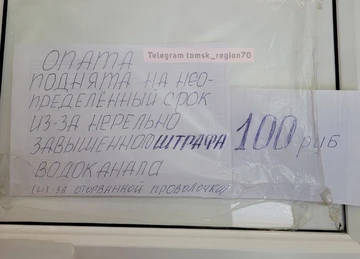 Telegram tomsk_region70
ОПАТА
ПОДНЯТА НА НЕО-
ПРЕДЕЛЁННЫЙ СРОК
ИЗ-ЗА НЕРЕЛЬНО
ЗАВЫШЕННОГО ШТРАФА 100 РУБ
ВОДОКАНАЛА
(ИЗ-ЗА ОТОРВАННОЙ ПРОВОЛОЧКИ)